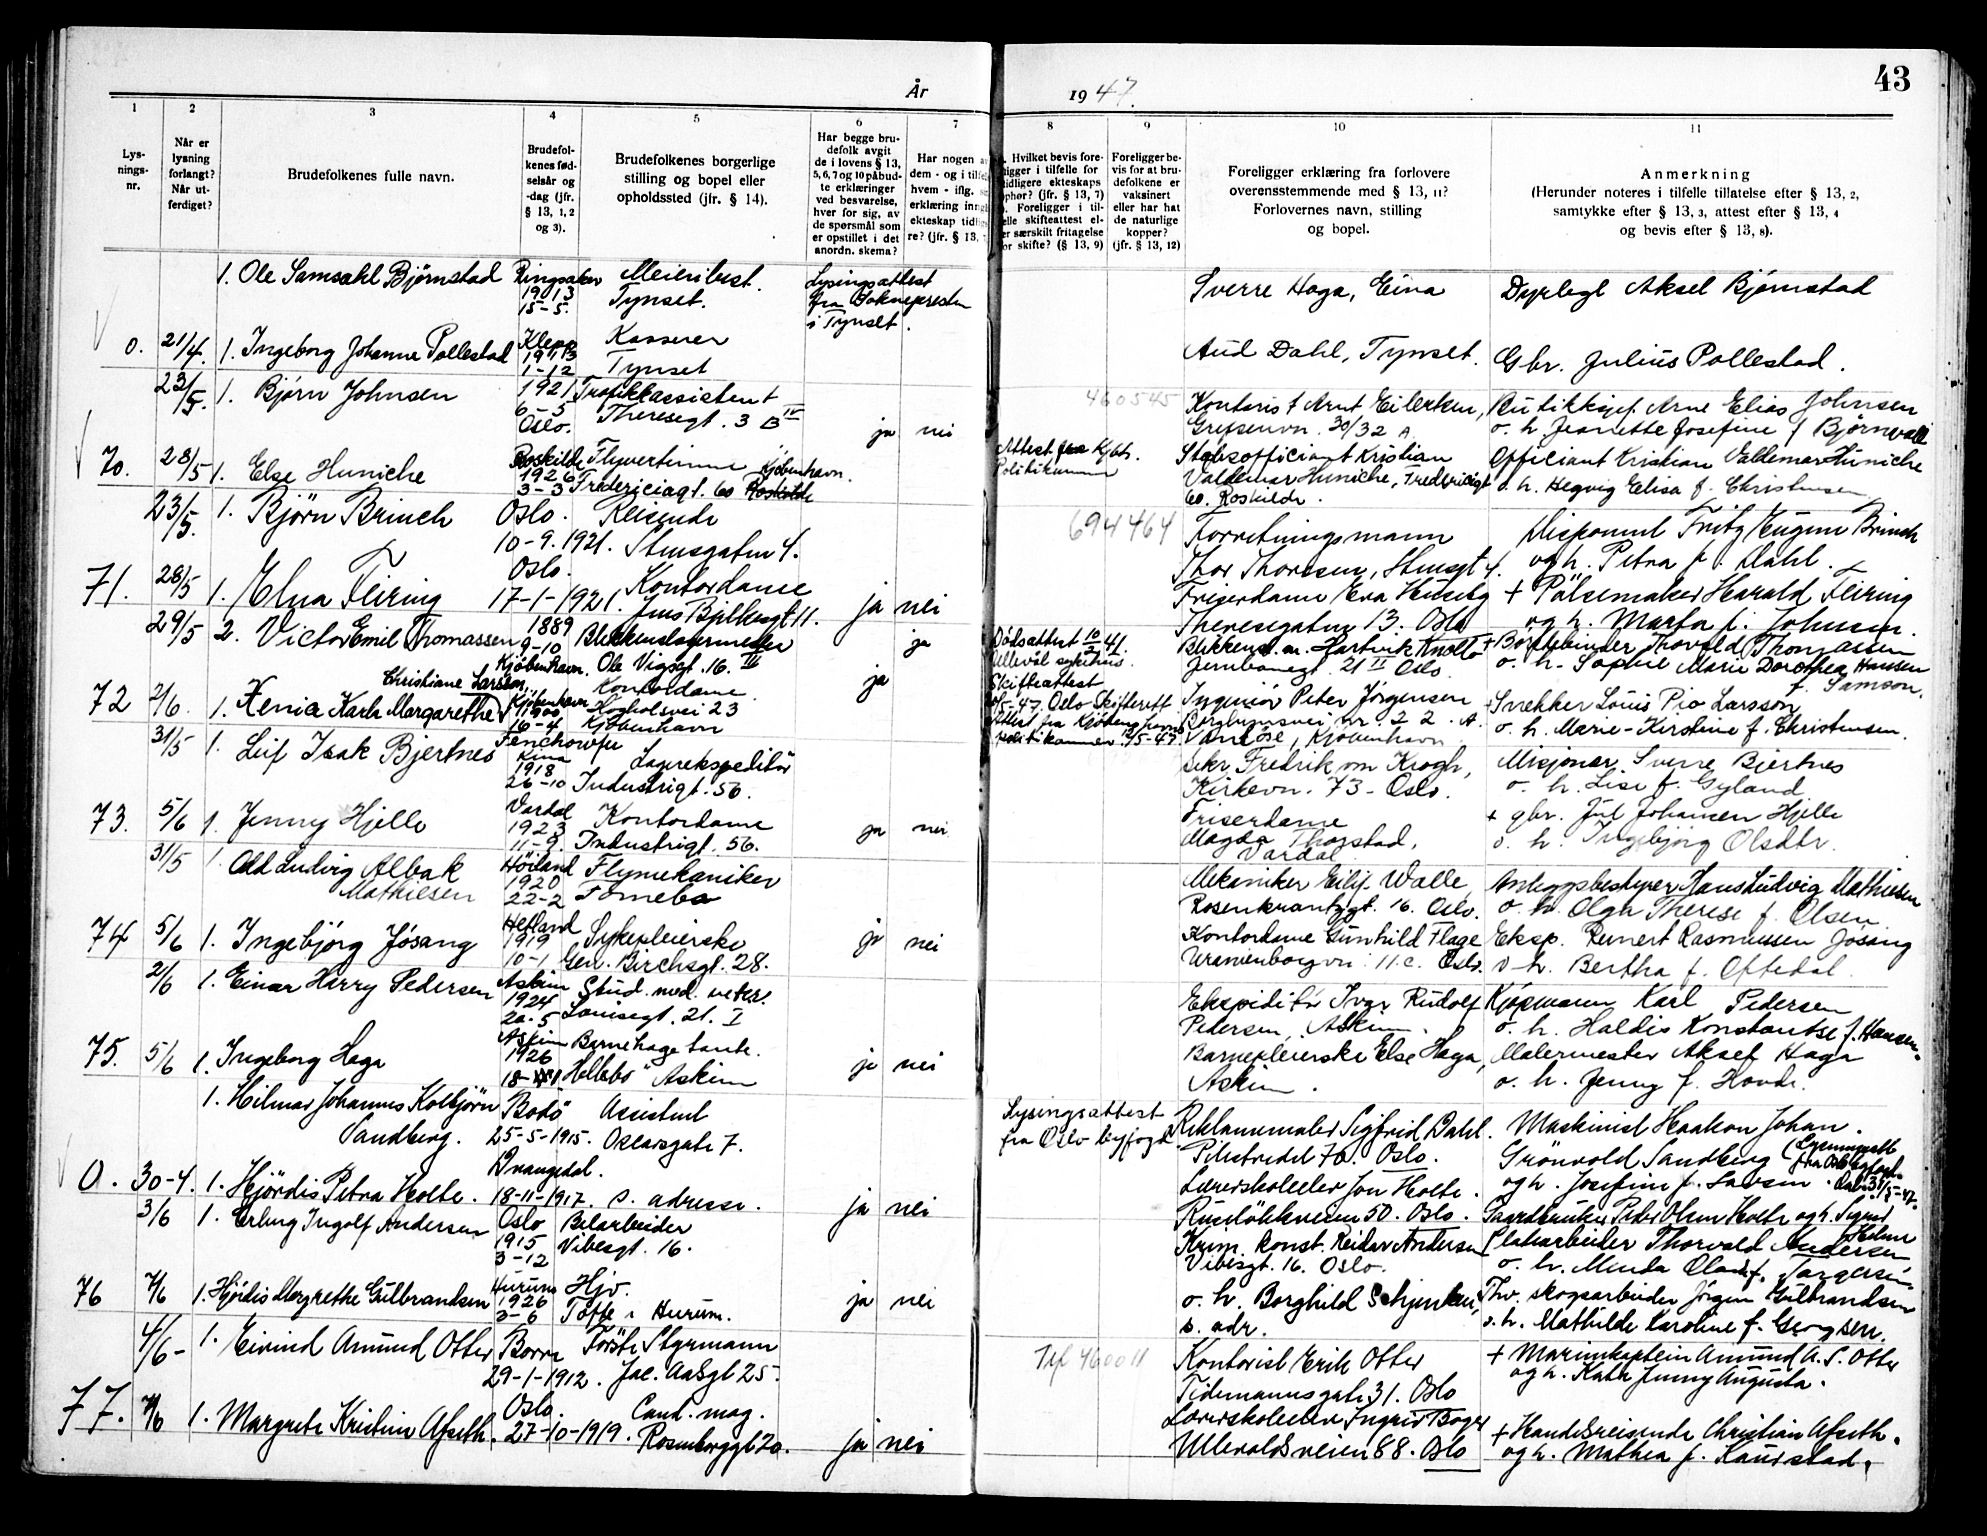 År 1947.
43
1 2 3 4 5 6 7 8 9 10 11
Lys-
nings-
nr.
Når er
lysning
forlangt?
Når ut-
ferdiget?
Brudefolkenes fulle navn.
Brudefol-
kenes fød-
selsår og
-dag (jfr.
§ 13, 1, 2
og 3).
Brudefolkenes borgerlige
stilling og bopel eller
opholdssted (jfr. § 14).
Har begge bru-
defolk avgit
de i lovens § 13,
5, 6, 7 og 10 påbud-
te erklæringer
ved besvarelse,
hver for sig, av
de spørsmål som
er opstillet i det
anordn. skema?
Har nogen a
dem - og i tilfel
hvem - iflg.
erklæring inng
ekteskap tidl
re? (jfr. § 13,
Hvilket bevis fore-
ligger i tilfelle for
tidligere ekteskaps
ophør? (jfr. § 13, 7)
Foreligger i til-
felle skifteattest el-
er særskilt fritagelse
for skifte? (§ 13, 9)
Foreligger be-
vis for at bru-
defolkene er
vaksinert
eller har hat
de naturlige
kopper?
(jfr. § 13, 12)
Foreligger erklæring fra forlovere
overensstemmende med § 13, 11?
Forlovernes navn, stilling
og bopel.
Anmerkning
(Herunder noteres i tilfelle tillatelse efter § 13, 2,
samtykke efter § 13, 3, attest efter § 13, 4
og bevis efter § 13, 8).
1. Ole Samsahl Bjørnstad
Ringsaker
1913
15-5.
Meieribest.
Tynset.
Lysingsattest
fra Soknepresten
i Tynset.
Sverre Haga, Eina
Dyrlegl Aksel Bjørnstad
0. 21/4. 1. Ingeborg Johanne Pollestad
Klepp
1913
1-12
Kasserer
Tynset
Aud Dahl, Tynset.
Gbr. Julius Pollestad.
23/5. 1. Bjørn Johnsen
1921
6-5
Oslo.
Trafikkassistent
Theresegt. 3 B IV
ja nei
460545
Kontorist Arnt Eilertsen,
Grefsenvn. 30/32 A.
Butikksjef. Arne Elias Johnsen
o. h. Jeanette Josefine f Bjørnvall
70. 28/5 1. Else Huniche
Roskilde
1926
3-3
Flyvertinne København.
Fredericiagt. 60 Roskilde
Attest fra Kjbh.
Politikammer
Stabsofficiant Kristian
Valdemar Huniche, Fredericigt
60. Roskilde.
Officiant Kristian Valdemar Huniche
o. h. Hegvig Elisa f. Christensen
23/5. 1. Bjørn Brinch
Oslo.
10-9. 1921.
Reisende
Stensgaten 4.
694464
Forretningsmann
Thor Thoresen, Stensgt 4.
Disponent Fritz Eugen Brinch
og h. Petra f. Dahl.
71. 28/5 1. Elna Feiring
Oslo.
17-1-1921.
Kontordame
Jens Bjelkesgt 11.
ja nei
Friserdame Eva Huseby
Theresegaten 13. Oslo
+ Pølsemaker Harald Feiring
og h. Marta f. Johnsen.
29/5 2. Victor Emil Thomassen
1889
9-10
Kjøbenhavn.
Blikkenslagermester
Ole Vigsgt. 16. III
ja
Dødsattest 10/2 41.
Ullevål sykehus.
Skifteattest
/5-47. Oslo Skifterett
Blikkensl. m. Hartvik Knotto
Jernbanegt. 21 II Oslo
+ Børstebinder Thorvald Thomassen
o. h. Sophie Marie Dorothea Hansen
f. Samson.
72 2/6. 1. Xenia Karla Margarethe Christiane Larsen,
Kjøbenhavn
1900
16-4
Kontordame
Hogholsvei 23
København
ja
Attest fra Kjøbenhavns
politikammer /5-47.
Ingeniør Peter Jørgensen
Borgbyensvei nr. 22. A.
Vanløse, København
+ Snekker Louis Pio Larsson
o. h. Marie-Kirstine f. Christensen.
31/5 1. Leif Isak Bjertnes
Fenchowfu
Kina
1918
26-10
Lagerekspeditør
Industrigt. 56.
Sekr. Fredrik von Krogh,
Kirkevn. 73 - Oslo.
Misjonær Sverre Bjertnes
o. h. Lise f. Gyland
73. 5/6 1. Jenny Hjelle
Vardal
1923
11-9
Kontordame
Industrigt. 56.
ja nei
Friserdame
Magda Thorstad,
Vardal
+ gbr. Jul Johansen Hjelle
o. h. Ingebjørg Olsdtr.
31/5 1. Odd Ludvig Albak
Mathiesen
Høiland
1920
22-2
Flymekaniker
Fornebo
Mekaniker Eilif Walle,
Rosenkrantzgt. 16. Oslo.
Anleggsbestyrer Hans Ludvig Mathiesen
o. h. Olga Therese f. Olsen
74 5/6 1. Ingebjörg Jösang
Hetland
1919
10-1
Sykepleierske
Gen. Birchsgt. 28.
ja nei
Kontordame Gunhild Flage
Uranienborgvn. 11.c. Oslo.
Eksp. Reinert Rasmussen Jösang
o-h. Bertha f. Oftedal.
2/6 1. Einar Harry Pedersen
Askim
1924
20-5
Stud. med. veter.
Lamsegt. 21. I
Ekspeditør Ivar Rudolf
Pedersen, Askim.
Kjøpmann Karl Pedersen
o. h. Haldis Konstantse f. Hansen.
75. 5/6 1. Ingeborg Haga
Askim
1926
18-11
Barnehagetante.
Hellebo" Askim
ja nei
Barnepleierske Else Haga,
Askim.
Malermester Aksel Haga
o. h. Jenny f. Hovde.
1. Hilmar Johannes Kolbjörn
Sandberg.
Bodö
25-5-1915.
Assistent
Oscarsgate 7.
Lysingsattest
fra Oslo byfogd
Reklamemaler Sigfrid Dahl.
Pilestredet 76. Oslo.
Maskinist Haakon Johan
Grönvold Sandberg (Lysningsatt.
fra Oslo byfogd.
og h. Josefine f. Larsen. dat. 31/5-47.
0. 30-4. 1. Hjördis Petra Holte.
Drangedal.
18-11-1917.
s. adresse.
ja nei
Lærerskoleelev Jon Holte.
Ruseløkkveien 50. Oslo.
Gaardbruker Peder Olsen Holte og h. Sigrid
Helene
3/6 1. Erling Ingolf Andersen
Oslo
1915
3-12
Bilarbeider
Vibesgt. 16.
Krim. konst. Reidar Andersen
Vibesgt. 16. Oslo.
Platearbeider Thorvald Andersen
o. h. Minda Olava f. Torgersen
76 7/6 1. Hjördis Margrethe Gulbrandsen
Hurum
1926
3-6
Hjv.
Tofte i Hurum.
ja nei
o. h. Borghild Schjenken,
s. adr.
Thv. skogsarbeider Jörgen Gulbrandsen
o. h. Mathilde Karoline f. Georgsen.
4/6- 1. Eivind Amund Otter
Borre
29-1-1912.
Förste Styrmann
Jac. Aalsgt 25.
Tlf 460011
Kontorist Erik Otter
Tidemannsgate 31. Oslo
+ Marinekaptein Amund A. S. Otter
og h. Kate Jenny Augusta.
77. 7/6 1. Margrete Kristine Afseth.
Oslo.
27-10-1919.
Cand. mag.
Rosenborggt 20.
ja nei
Lærerskoleelev Ingrid Boger
Ullevoldsveien 88. Oslo
+ Handelsreisende Christian Afseth.
og h. Mathea f. Kaurstad.